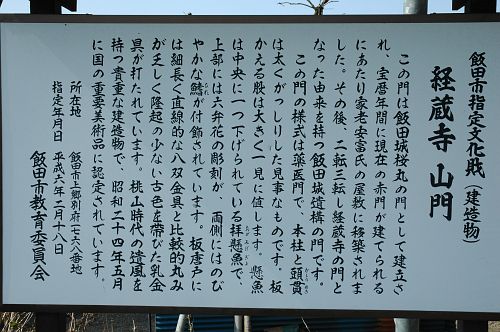 飯田市指定文化財（建造物）
経蔵寺 山門
この門は飯田城桜丸の門として建立さ
れ、宝暦年間に現在の赤門が建てられる
にあたり家老安富氏の屋敷に移築されま
した。その後、二転三転し経蔵寺の門と
なった由来を持つ飯田城遺構の門です。
この門の様式は薬医門で、本柱と頭貫
は太くがっしりした見事なものです。板
かえる股は大きく一見に値します。懸魚
は中央に一つ下げられている拝懸魚で、
上部には六弁花の彫刻が、両側にはのび
やかな鰭が付飾されています。板唐戸に
は細長く直線的な八双金具と比較的丸み
が乏しく隆起の少ない古色を帯びた乳金
具が打たれています。桃山時代の遺風を
持つ貴重な建造物で、昭和二十四年五月
に国の重要美術品に認定されています。
所在地 飯田市上郷別府一七六八番地
指定年月日 平成六年二月十八日
飯田市教育委員会